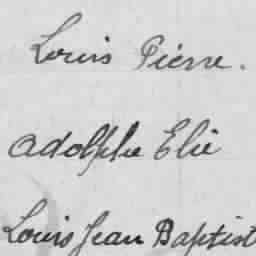 Louis Pierre.
Adolphe Elie
Louis Jean Baptist